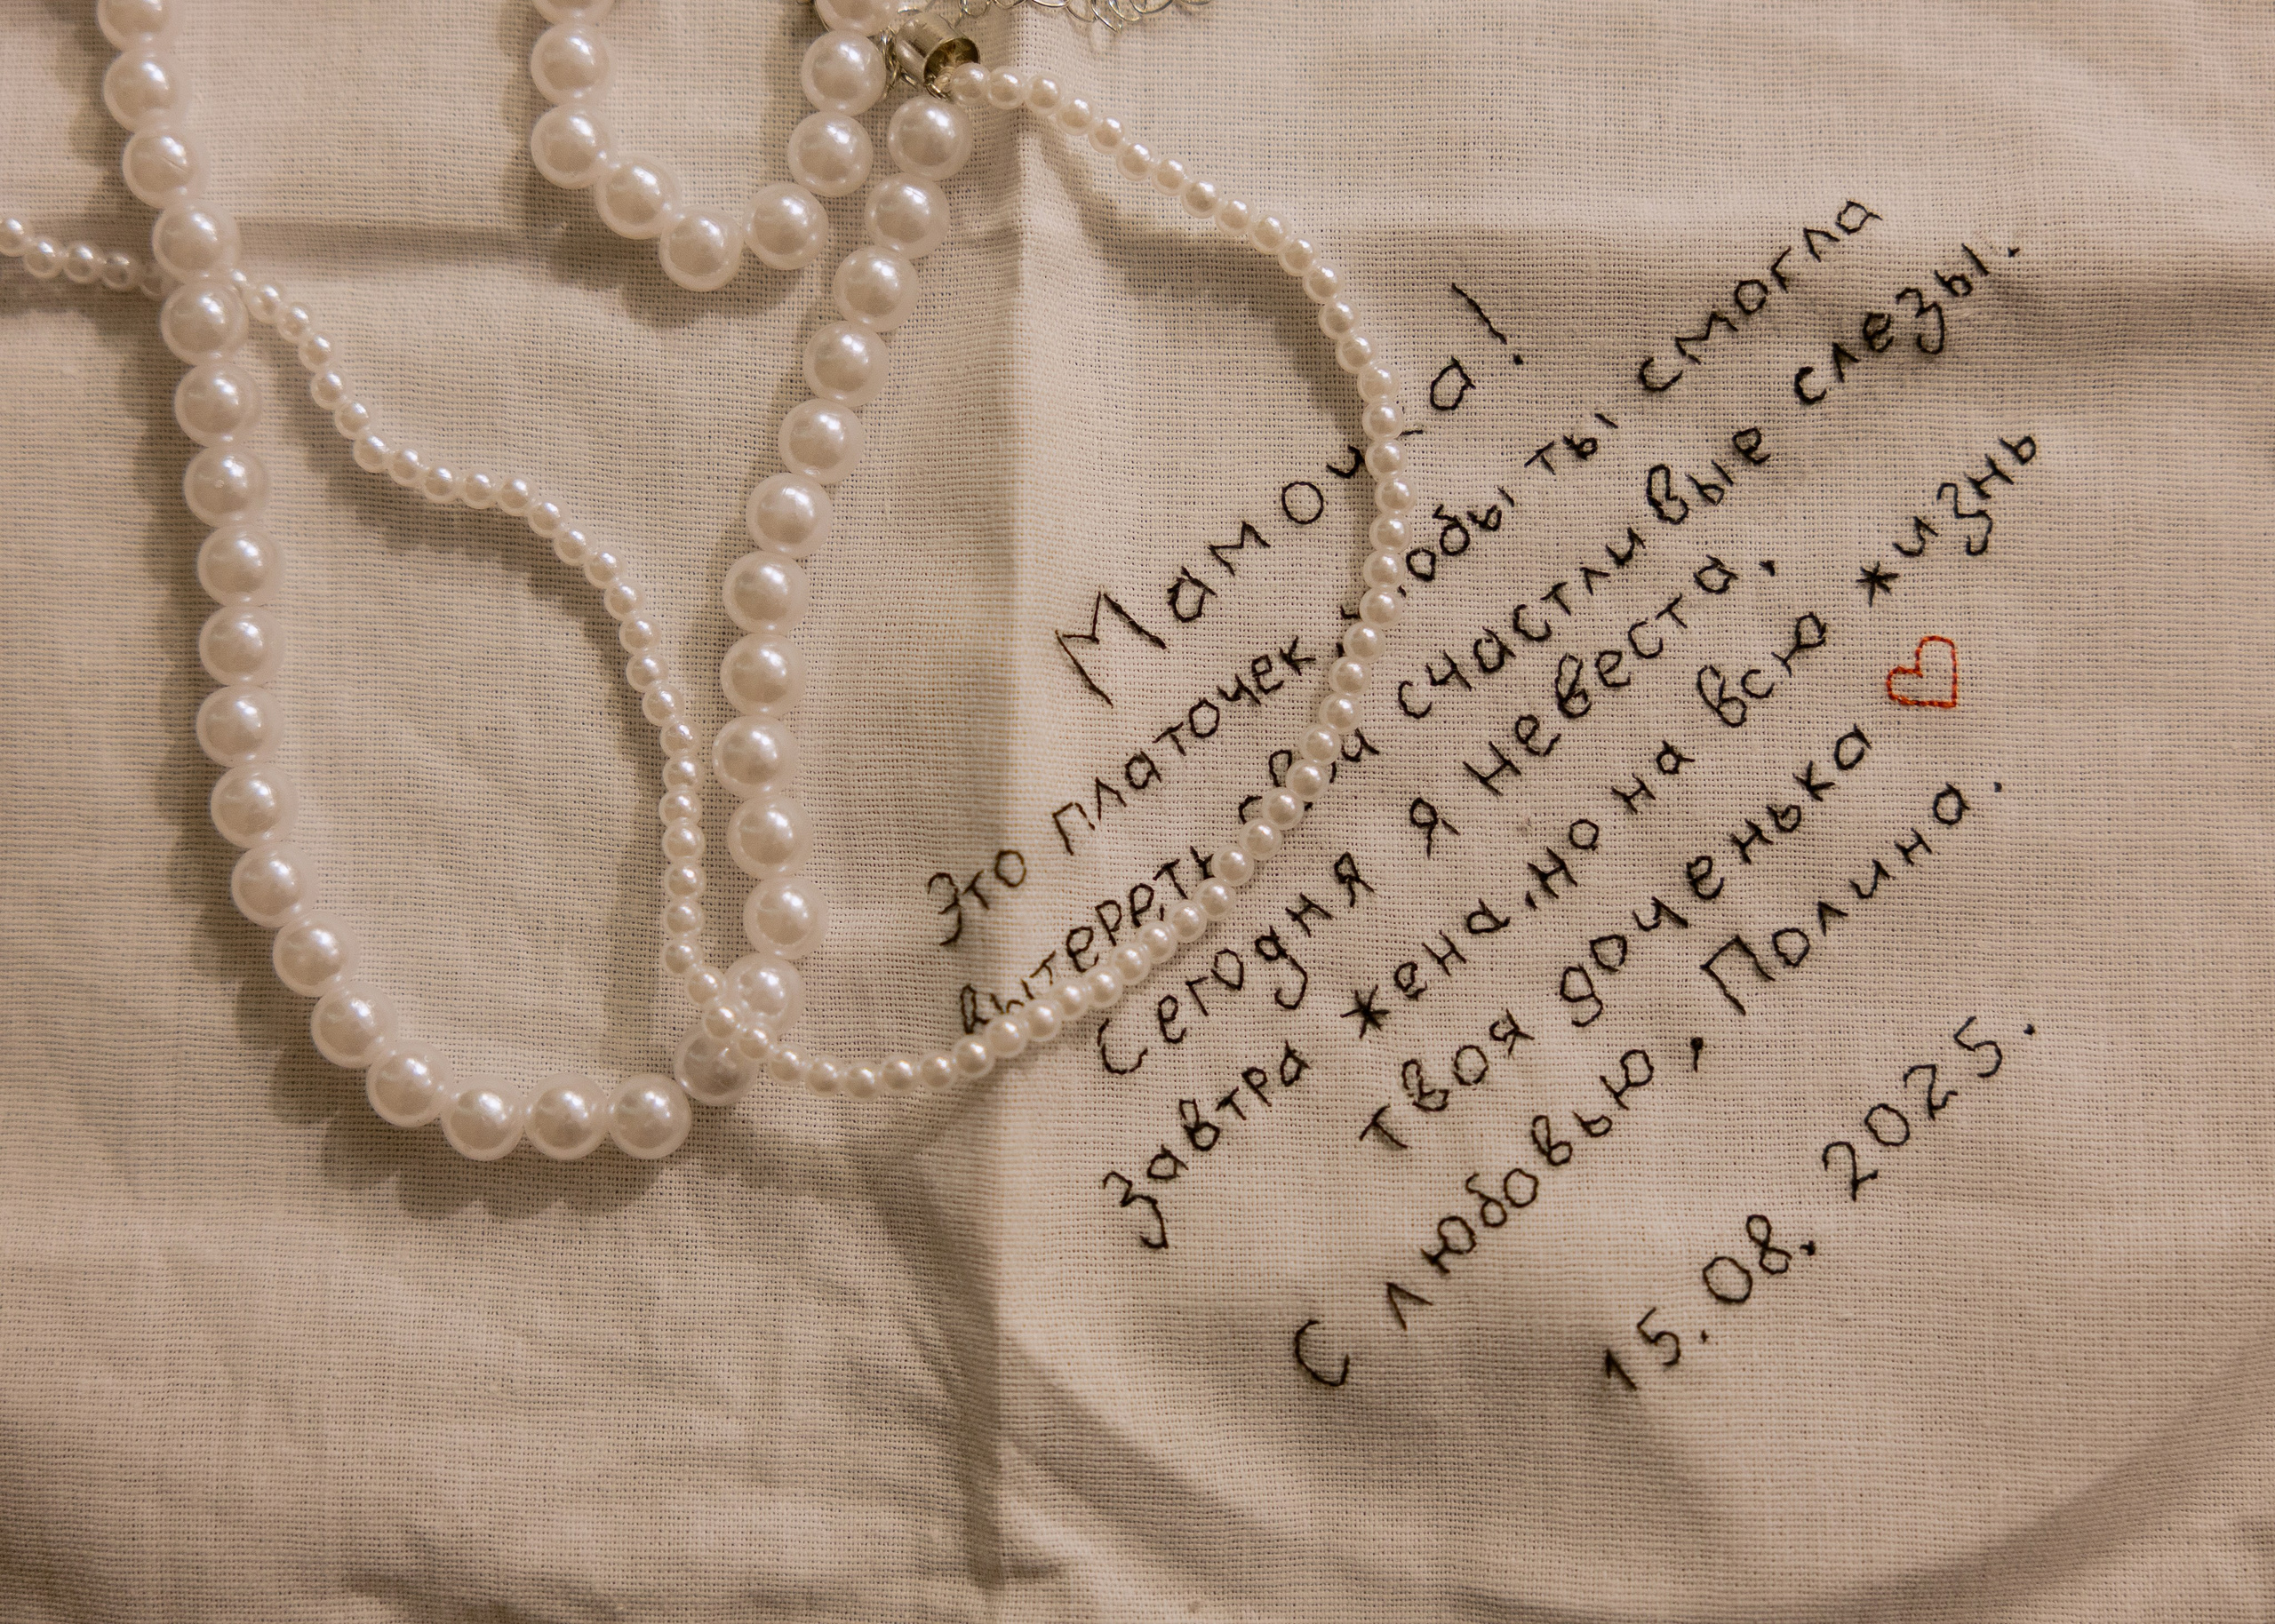 Мамочка!
Это платочек, чтобы ты смогла
вытереть свои счастливые слезы.
Сегодня я невеста,
Завтра жена, но на всю жизнь
твоя доченька ♡
С любовью, Полина.
15.08. 2025.